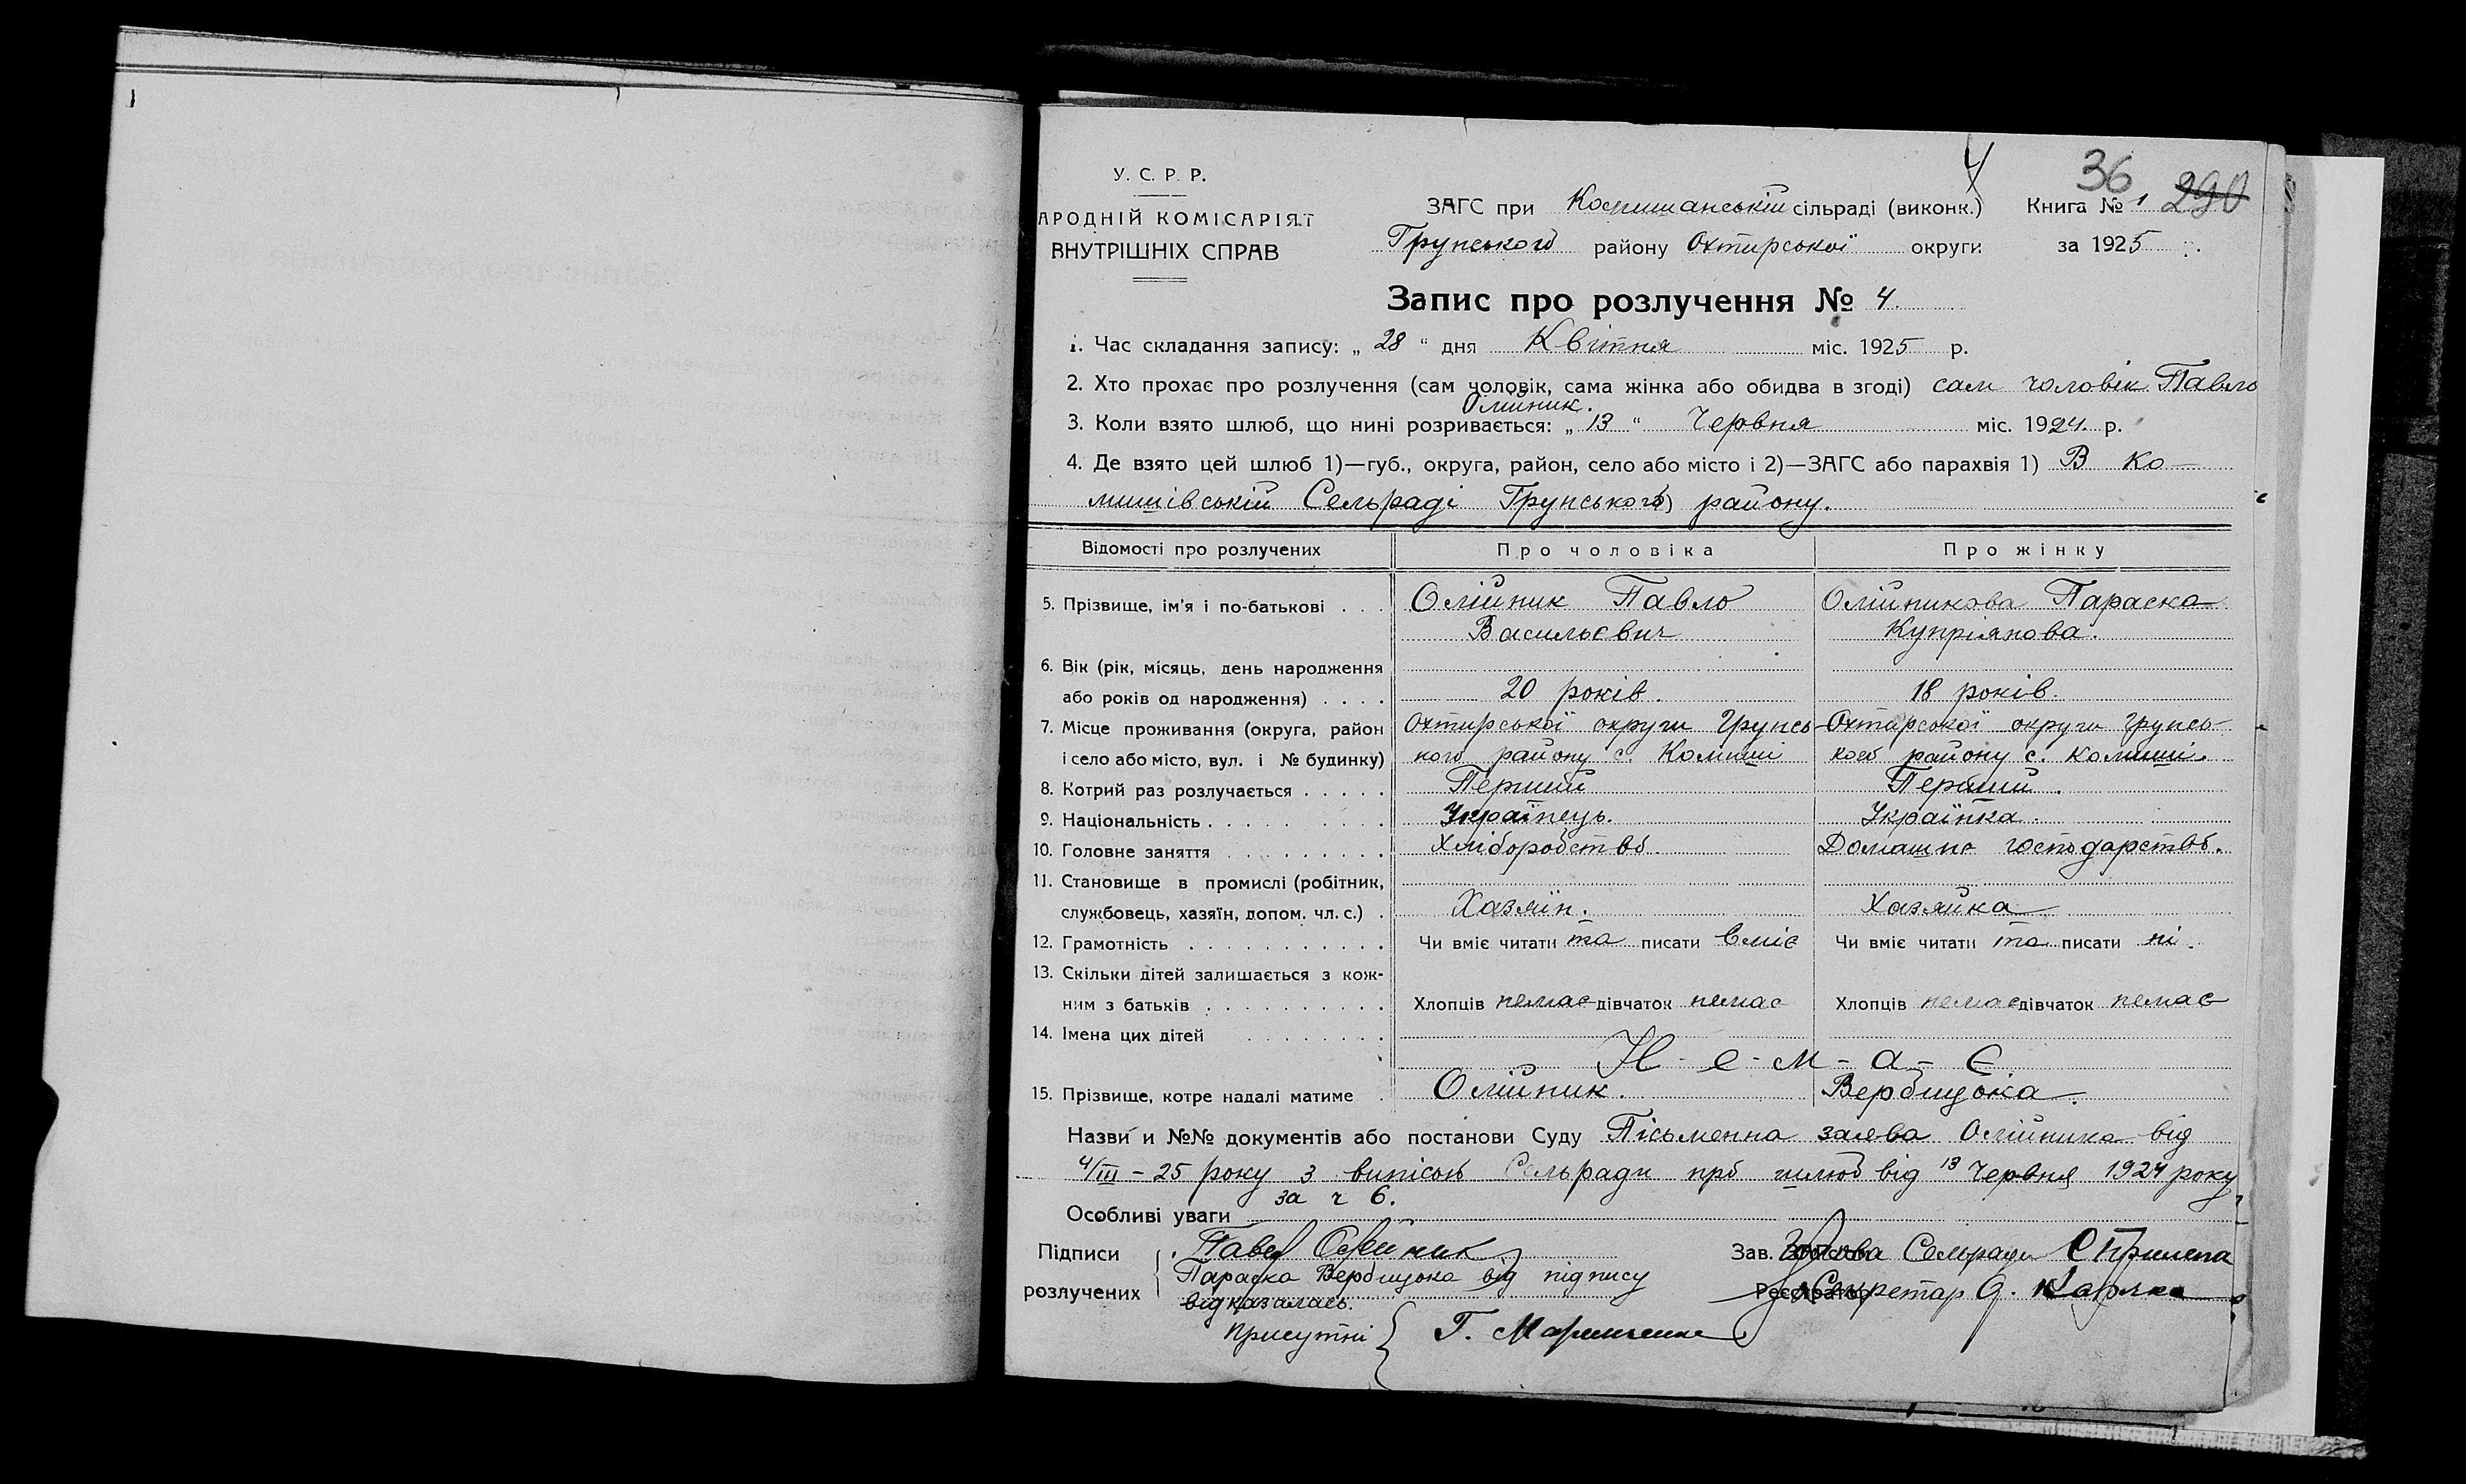 4 36 290
У. С. Р. Р.
АРОДНІЙ КОМІСАРІЯТ
ВНУТРІШНІХ СПРАВ
ЗАГС при сільраді (виконк.) Книга № 1
Грунського району Охтирської округи за 1925
Запис про розлучення № 4.
1. Час складання запису: „ 28 “ дня Квітня міс. 1925 р.
2. Хто прохає про розлучення (сам чоловік, сама жінка або обидва в згоді) сам чоловік Павло
Олійник.
3. Коли взято шлюб, що нині розривається: „ 13 “ Червня міс. 1924 р.
4. Де взято цей шлюб 1)—губ., округа, район, село або місто і 2)—ЗАГС або парахвія 1) В Ко-
мишівській Сельраді Грунського) району.
Відомості про розлучених Про чоловіка Про жінку
5. Прізвище, ім'я і по-батькові . . . Олійник Павло Олійникова Параска
Васильєвич Купріянова.
6. Вік (рік, місяць, день народження
або років од народження) . . . . 20 років. 18 років.
7. Місце проживання (округа, район Охтирської округи Грунсь- Охтирської округи Грунсь-
і село або місто, вул. і № будинку) кого району с. Комиші кого району с. Комиші.
8. Котрий раз розлучається . . . . . Перший Перший.
9. Національність . . . . . . Українець. Українка.
10. Головне заняття . . . . . . . . . Хліборобство. Домашнє господарство.
11. Становище в промислі (робітник,
службовець, хазяїн, допом. чл. с.) . Хазяїн. Хазяйка
12. Грамотність . . . . . . . . . . . Чи вміє читати та писати вміє Чи вміє читати та писати ні.
13. Скільки дітей залишається з кож-
ним з батьків . . . . . . . . . . Хлопців немає дівчаток немає Хлопців немає дівчаток немає
14. Імена цих дітей . . . . . . . .
Н-е-м-а-є
15. Прізвище, котре надалі матиме . Олійник. Вербицька.
Назви и №№ документів або постанови Суду Пісьменна заява Олійника від
4/III-25 року з випісом Сельради про шлюб від 13 Червня 1924 року
за ч 6.
Особливі уваги
Підписи Павел Олейник Зав. Голова Сельради
Параска Вербицька від підпису
розлучених Секретар
відказалась.
Присутні Г.